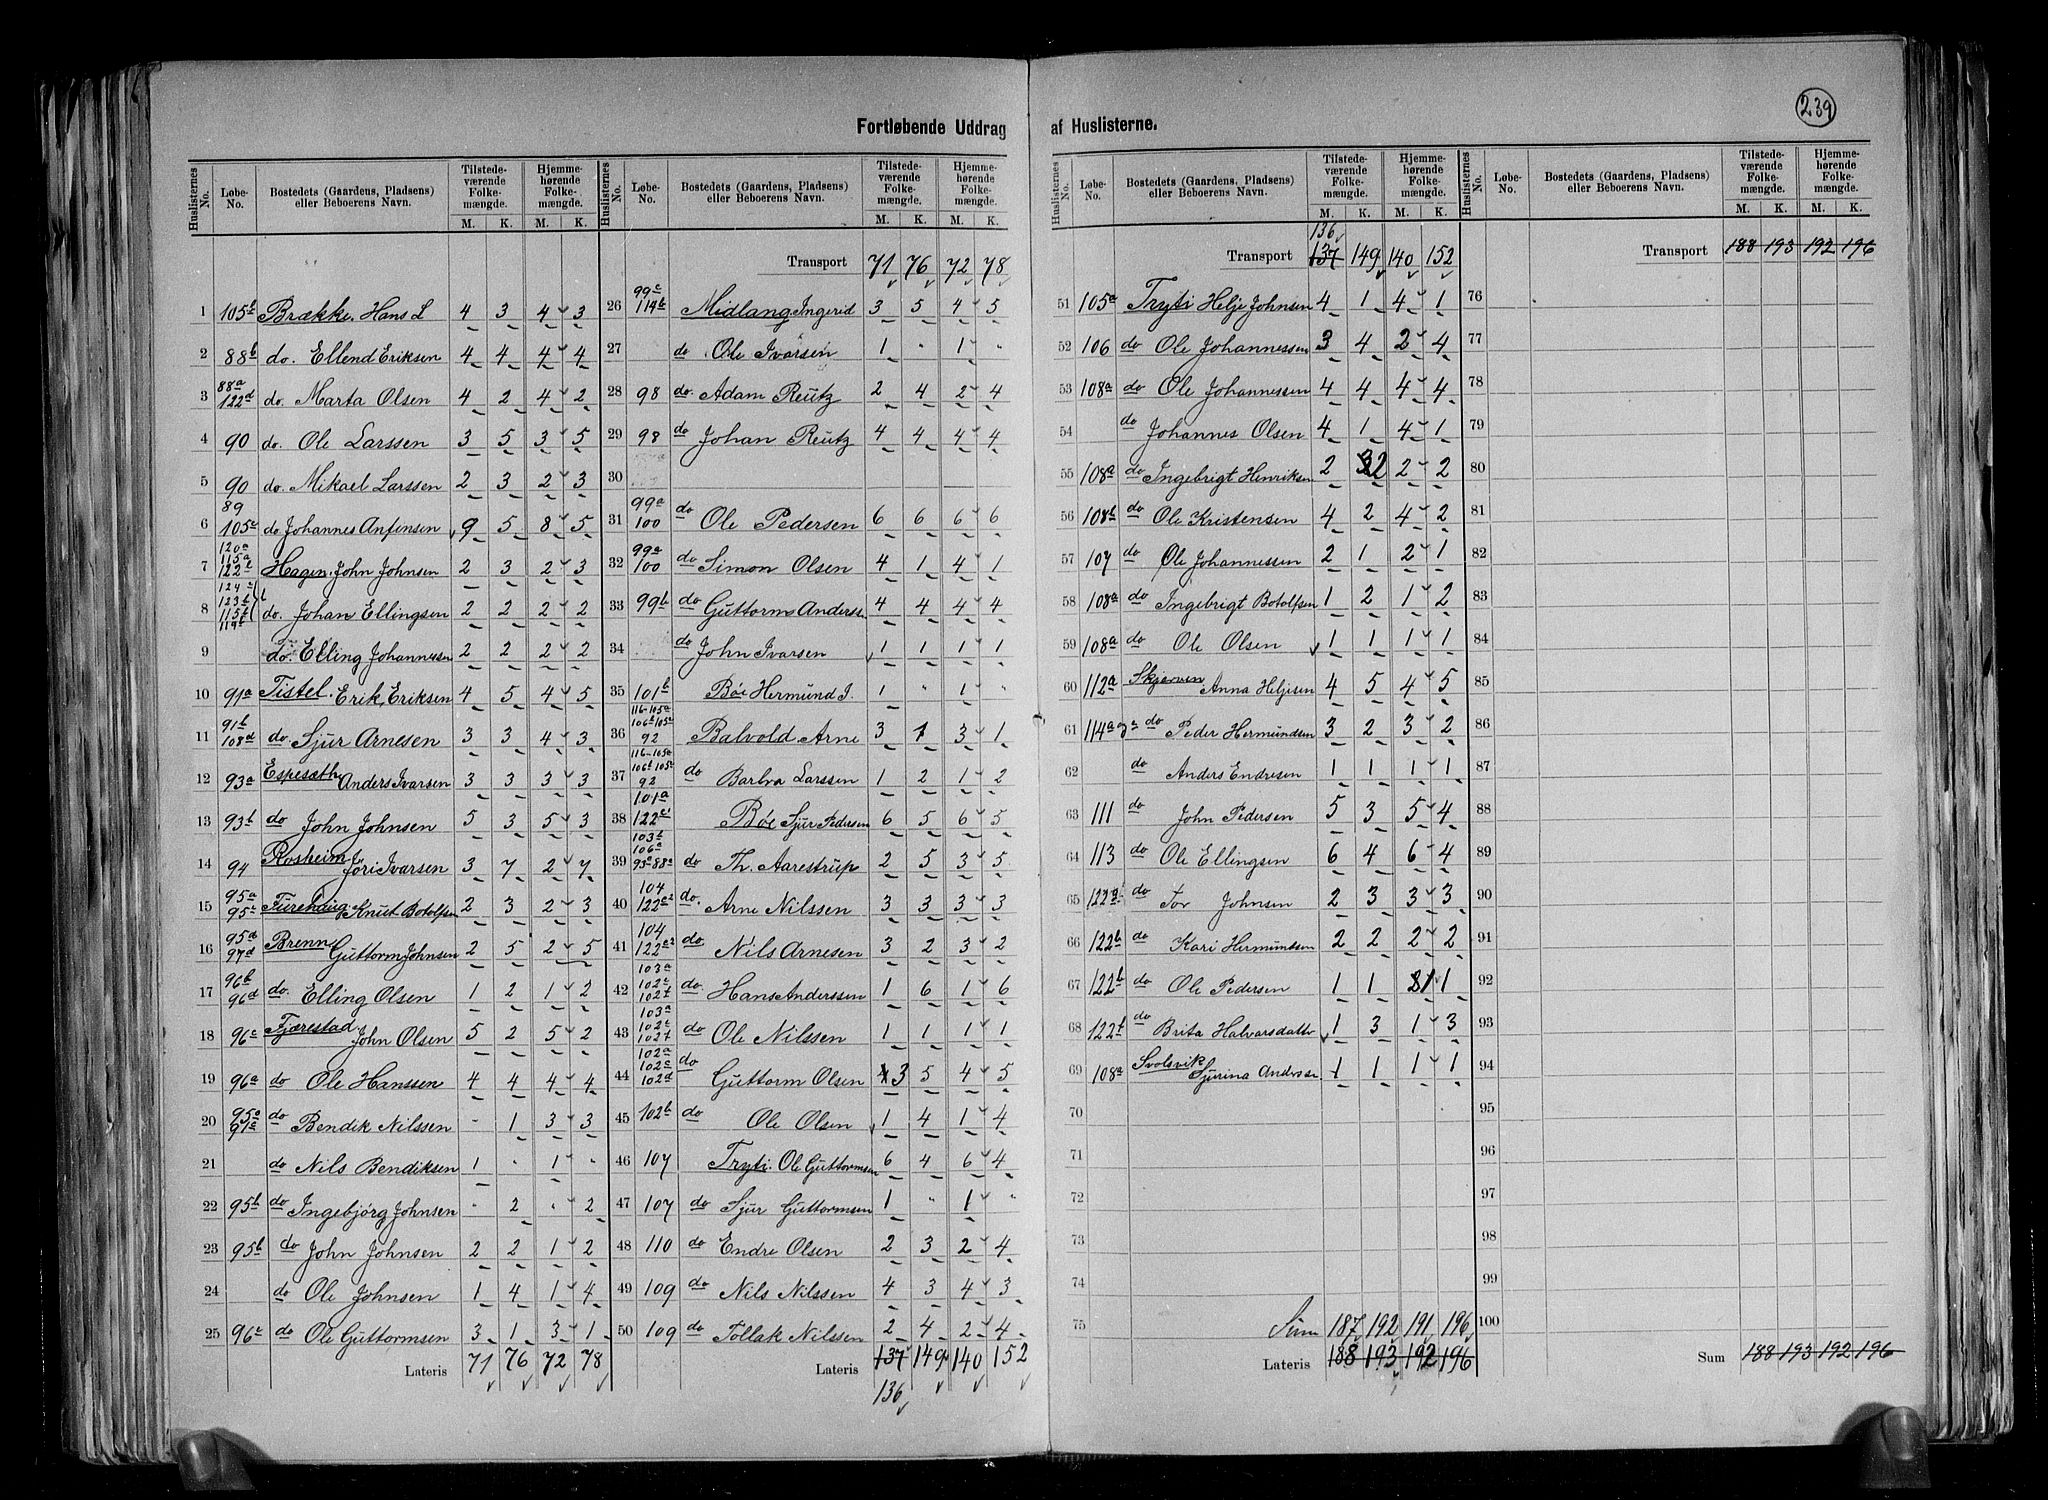 239
Fortløbende Uddrag af Huslisterne.
Huslisternes No. Løbe-No. Bostedets (Gaardens, Pladsens) eller Beboerens Navn. Tilstedeværende Folkemængde. M. K. Hjemmehørende Folkemængde. M. K.
1 105b Brække. Hans L 4 3 4 3
2 88b do. Ellend Eriksen 4 4 4 4
3 88a 122d do. Marta Olsen 4 2 4 2
4 90 do. Ole Larssen 3 5 3 5
5 90 do. Mikael Larssen 2 3 2 3
6 89 105c do Johannes Anfensen 9 5 8 5
7 120a 115a 122b Hagen. John Johnsen 2 3 2 3
8 124c 123b 115b 119b do. Johan Ellingsen 2 2 2 2
9 do. Elling Johannesen 2 2 2 2
10 91a Tistel. Erik Eriksen 4 5 4 5
11 91b 108d do. Sjur Arnesen 3 3 4 3
12 93a Espesæth Anders Ivarsen 3 3 3 3
13 93b do John Johnsen 5 3 5 3
14 94 Rosheim Jöri Ivarsen 3 7 2 7
15 95a 95c Furehaug Knut Botolfsen 2 3 2 3
16 95d 97d Brenn Guttorm Johnsen 2 5 2 5
17 96b 96d do. Elling Olsen 1 2 1 2
18 96c Fjærestad John Olsen 5 2 5 2
19 96a do Ole Hanssen 4 4 4 4
20 95a 97a do Bendik Nilssen - 1 3 3
21 do Nils Bendiksen 1 " 1 "
22 95b do Ingebjørg Johnsen " 2 " 2
23 95b do John Johnsen 2 2 1 2
24 do Ole Johnsen 1 4 1 4
25 96c do Ole Guttormsen 3 1 3 1
Lateris 71 76 72 78
Huslisternes No. Løbe-No. Bostedets (Gaardens, Pladsens) eller Beboerens Navn. Tilstedeværende Folkemængde. M. K. Hjemmehørende Folkemængde. M. K.
Transport 71 76 72 78
26 99c 114b Midlang Ingerid 3 5 4 5
27 do. Ole Ivarsen 1 " 1 "
28 98 do. Adam Reutz 2 4 2 4
29 98 do Johan Reutz 4 4 4 4
30
31 99a 100 do Ole Pedersen 6 6 6 6
32 99a 100 do Simon Olsen 4 1 4 1
33 99b do Guttorm Anderss 4 4 4 4
34 do John Ivarsen 1 1 1 1
35 101b Bøe Hermund J. 1 " 1 "
36 116-105a 106b 105a 92 Balvold Arne 3 1 3 1
37 116-105a 106b 105a 92 do Barbra Larssen 1 2 1 2
38 101a 122c1 103b Bøe Sjur Pedersen 6 5 6 5
39 106a 95a-88a do Th. Aarestrup 2 5 3 5
40 104 122a2 do. Arne Nilssen 3 3 3 3
41 104 122a2 do Nils Arnesen 3 2 3 2
42 103a 102c 102f do. Hans Anderssen 1 6 1 6
43 103a 102c 102f do Ole Nilssen 1 1 1 1
44 102a 102c 102d do Guttorm Olsen 3 5 4 5
45 102b do Ole Olsen 1 4 1 4
46 107 Tryti. Ole Guttormsen 6 4 6 4
47 107 do Sjur Guttormsen 1 " 1 "
48 110 do Endre Olsen 2 3 2 4
49 109 do Nils Nilssen 4 3 4 3
50 109 do Tollak Nilssen 2 4 2 4
Lateris 137 149 140 152
136
Huslisternes No. Løbe-No. Bostedets (Gaardens, Pladsens) eller Beboerens Navn. Tilstedeværende Folkemængde. M. K. Hjemmehørende Folkemængde. M. K.
136
Transport 137 149 140 152
51 105a Tryti Helje Johnsen 4 1 4 1
52 106 do Ole Johannessen 3 4 2 4
53 108a do Ole Johannessen 4 4 4 4
54 do Johannes Olsen 4 1 4 1
55 108a do Ingebrigt Henriksen 2 2 2 2
56 108b do Ole Kristensen 4 2 4 2
57 107 do Ole Johannessen 2 1 2 1
58 108a do Ingebrigt Botolfsen 1 2 1 2
59 108a do Ole Olsen 1 1 1 1
60 112a Skjerven Anna Heljesen 4 5 4 5
61 114a do Peder Hermundsen 3 2 3 2
62 do Anders Endresen 1 1 1 1
63 111 do John Pedersen 5 3 5 4
64 113 do Ole Ellingsen 6 4 6 4
65 122g do Tor Johnsen 2 3 3 3
66 122b do Kari Hermundsen 2 2 2 2
67 122b do Ole Pedersen 1 1 1 1
68 122f do Brita Halvarsdatter 1 3 1 3
69 108a Svolsvik Sjurina Anderss 1 1 1 1
70
71
72
73
74
75
Sum 187 192 191 196
Lateris 188 193 192 196
Huslisternes No. Løbe-No. Bostedets (Gaardens, Pladsens) eller Beboerens Navn. Tilstedeværende Folkemængde. M. K. Hjemmehørende Folkemængde. M. K.
Transport 188 193 192 196
76
77
78
79
80
81
82
83
84
85
86
87
88
89
90
91
92
93
94
95
96
97
98
99
100
Sum 188 193 192 196